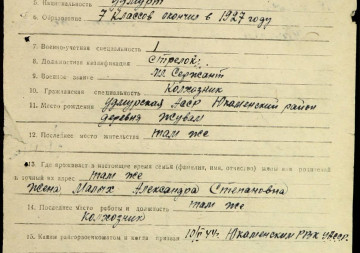 5. Национальность Удмурт
6. Образование 7 классов окончил в 1927 году
7. Военно-учетная специальность 1
8. Должностная квалификация стрелок
9. Военное звание мл. Сержант
10. Гражданская специальность Колхозник
11. Место рождения Удмурская Аасср Юкаменский район
деревня Жувам
12. Последнее место жительства там же
13. Где проживает в настоящее время семья (фамилия, имя, отчество) жены или родителей
и точный их адрес там же
Жена Малых Александра Степановна
14. Последнее место работы и должность там же
Колхозник
15. Каким райвоенкоматом и когда призван Юкаменским РВК УАССР.